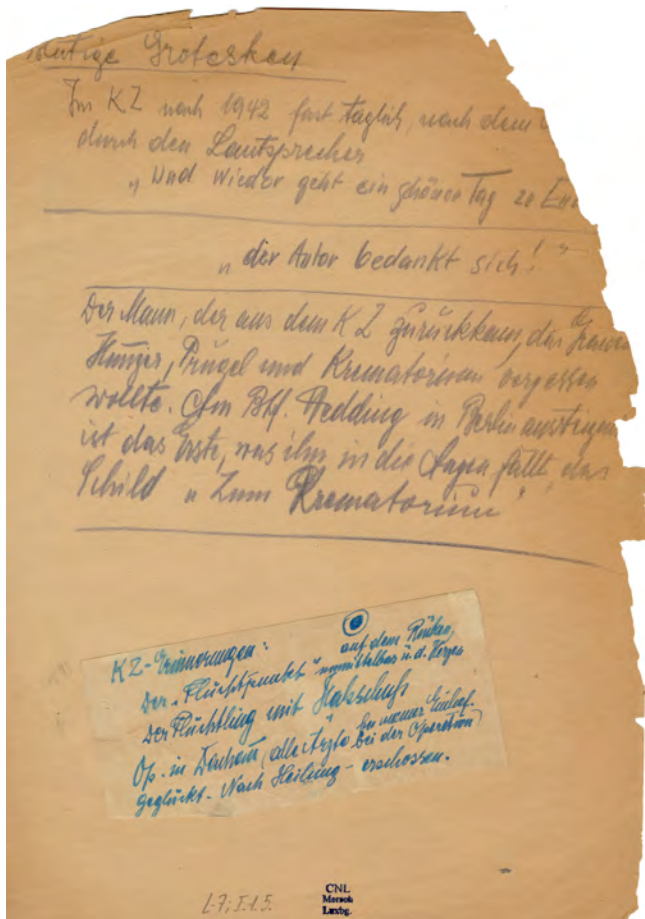 Blutige Grotesken
Im KZ nach 1942 fast täglich, nach dem
durch den Lautsprecher
„Und wieder geht ein schöner Tag zu En
„der Autor bedankt sich!"
Der Mann, der aus dem KZ zurückkam, das Grauen
Hunger, Prügel und Krematorium vergessen
wollte. Am Bhf. Wedding in Berlin
ist das Erste, was ihm in die Augen fällt, das
Schild „Zum Krematorium"
KZ-Erinnerungen:
Der „Fluchtpunkt" auf dem Rücken,
unmittelbar ü. d. Herzen
Der Flüchtling mit Halsschuß
Op. in Dachau, (alle Ärzte bei der Operation)
geglückt - Nach Heilung - erschossen.
L-7; I.1.5.
CNL
Mersch
Luxbg.